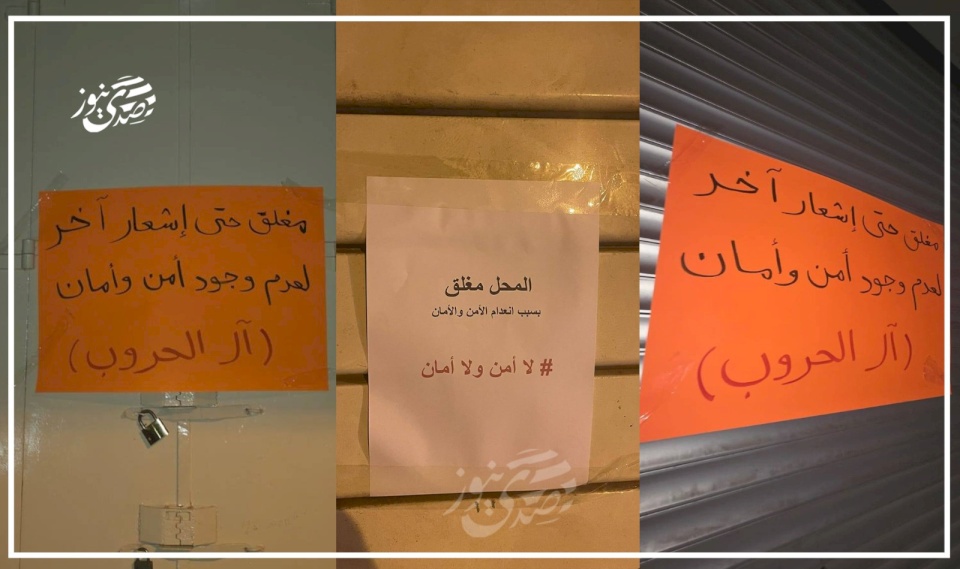 صدى نيوز
مغلق حتى إشعار آخر
لعدم وجود أمن وأمان
(آل الحروب)
المحل مغلق
بسبب انعدام الأمن والأمان
# لا أمن ولا أمان
صدى نيوز
مغلق حتى إشعار آخر
لعدم وجود أمن وأمان
(آل الحروب)